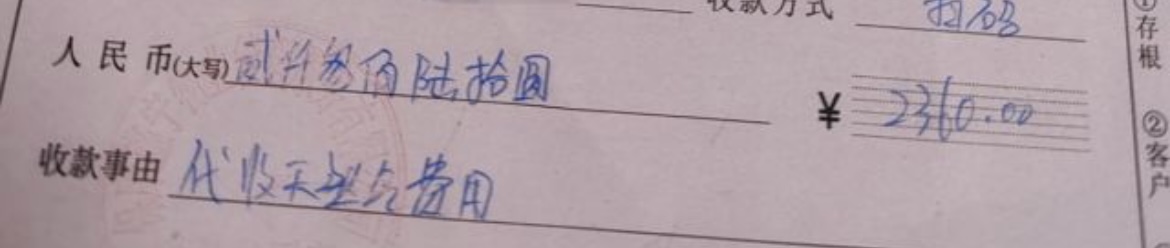 收款方式 扫码
人民币(大写) 贰仟叁佰陆拾圆 ¥ 2360.00
收款事由 代收天 费用
①存根
②客户